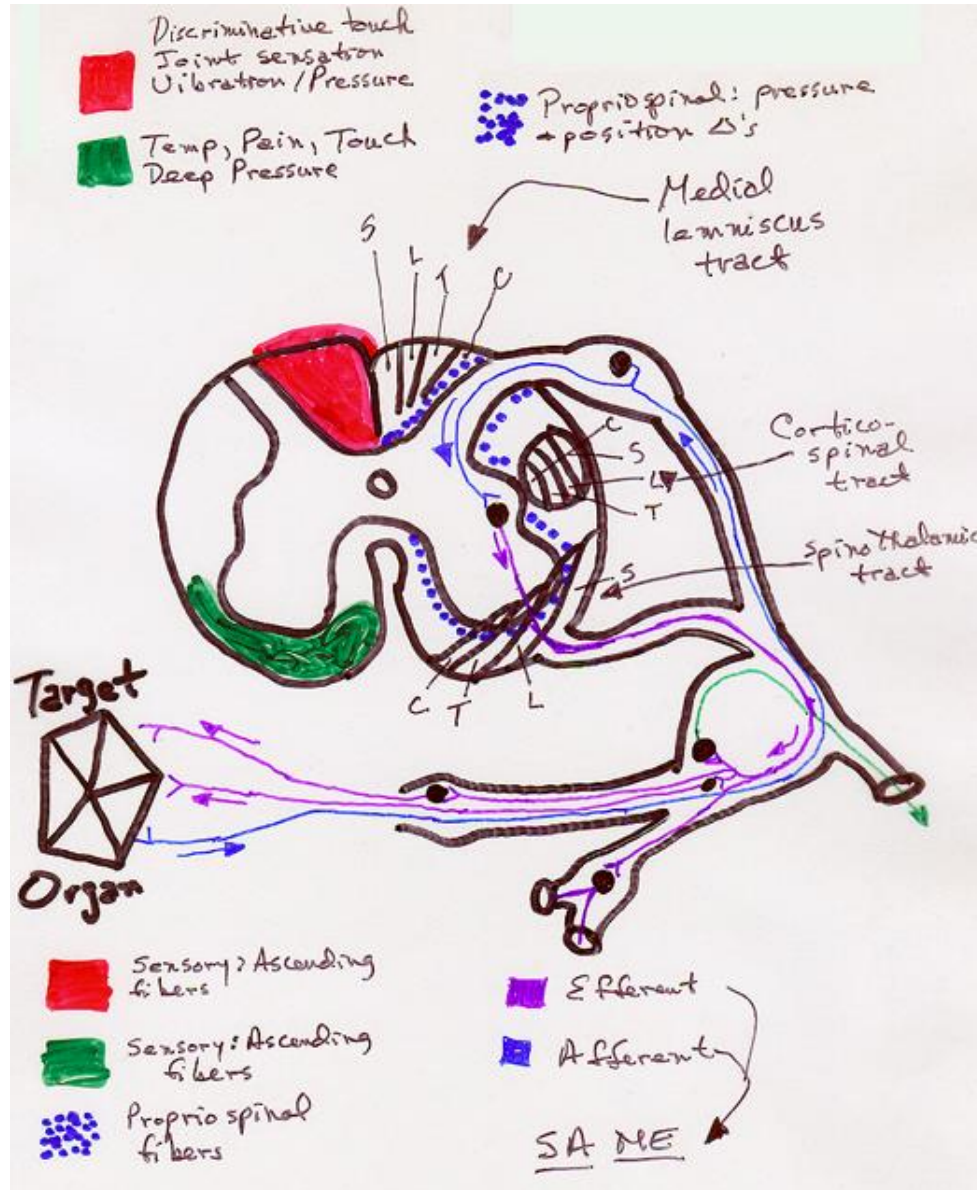 Discriminative touch
Joint sensation
Vibration/Pressure
Temp, Pain, Touch
Deep Pressure
Propriospinal: pressure
+ position Δ's
Medial
lemniscus
tract
S
L
T
C
Cortico-
spinal
tract
C
S
L
T
Spinothalamic
tract
S
C
T
L
Target
Organ
Sensory: Ascending
fibers
Sensory: Ascending
fibers
Proprio spinal
fibers
Efferent
Afferent
SA ME